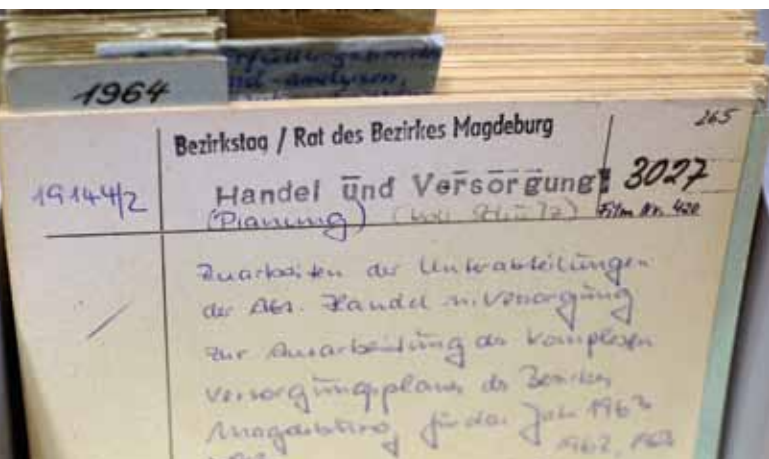 Erfüllungsberichte
und -analysen,
1964
265
Bezirkstag / Rat des Bezirkes Magdeburg
19144/2
Handel und Versorgung
3027
(Planung)
Film Nr. 420
Zuarbeiten der Unterabteilungen
der Abt. Handel u. Versorgung
zur Ausarbeitung des komplexen
Versorgungsplanes des Bezirkes
Magdeburg für das Jahr 1963
1962, 1963